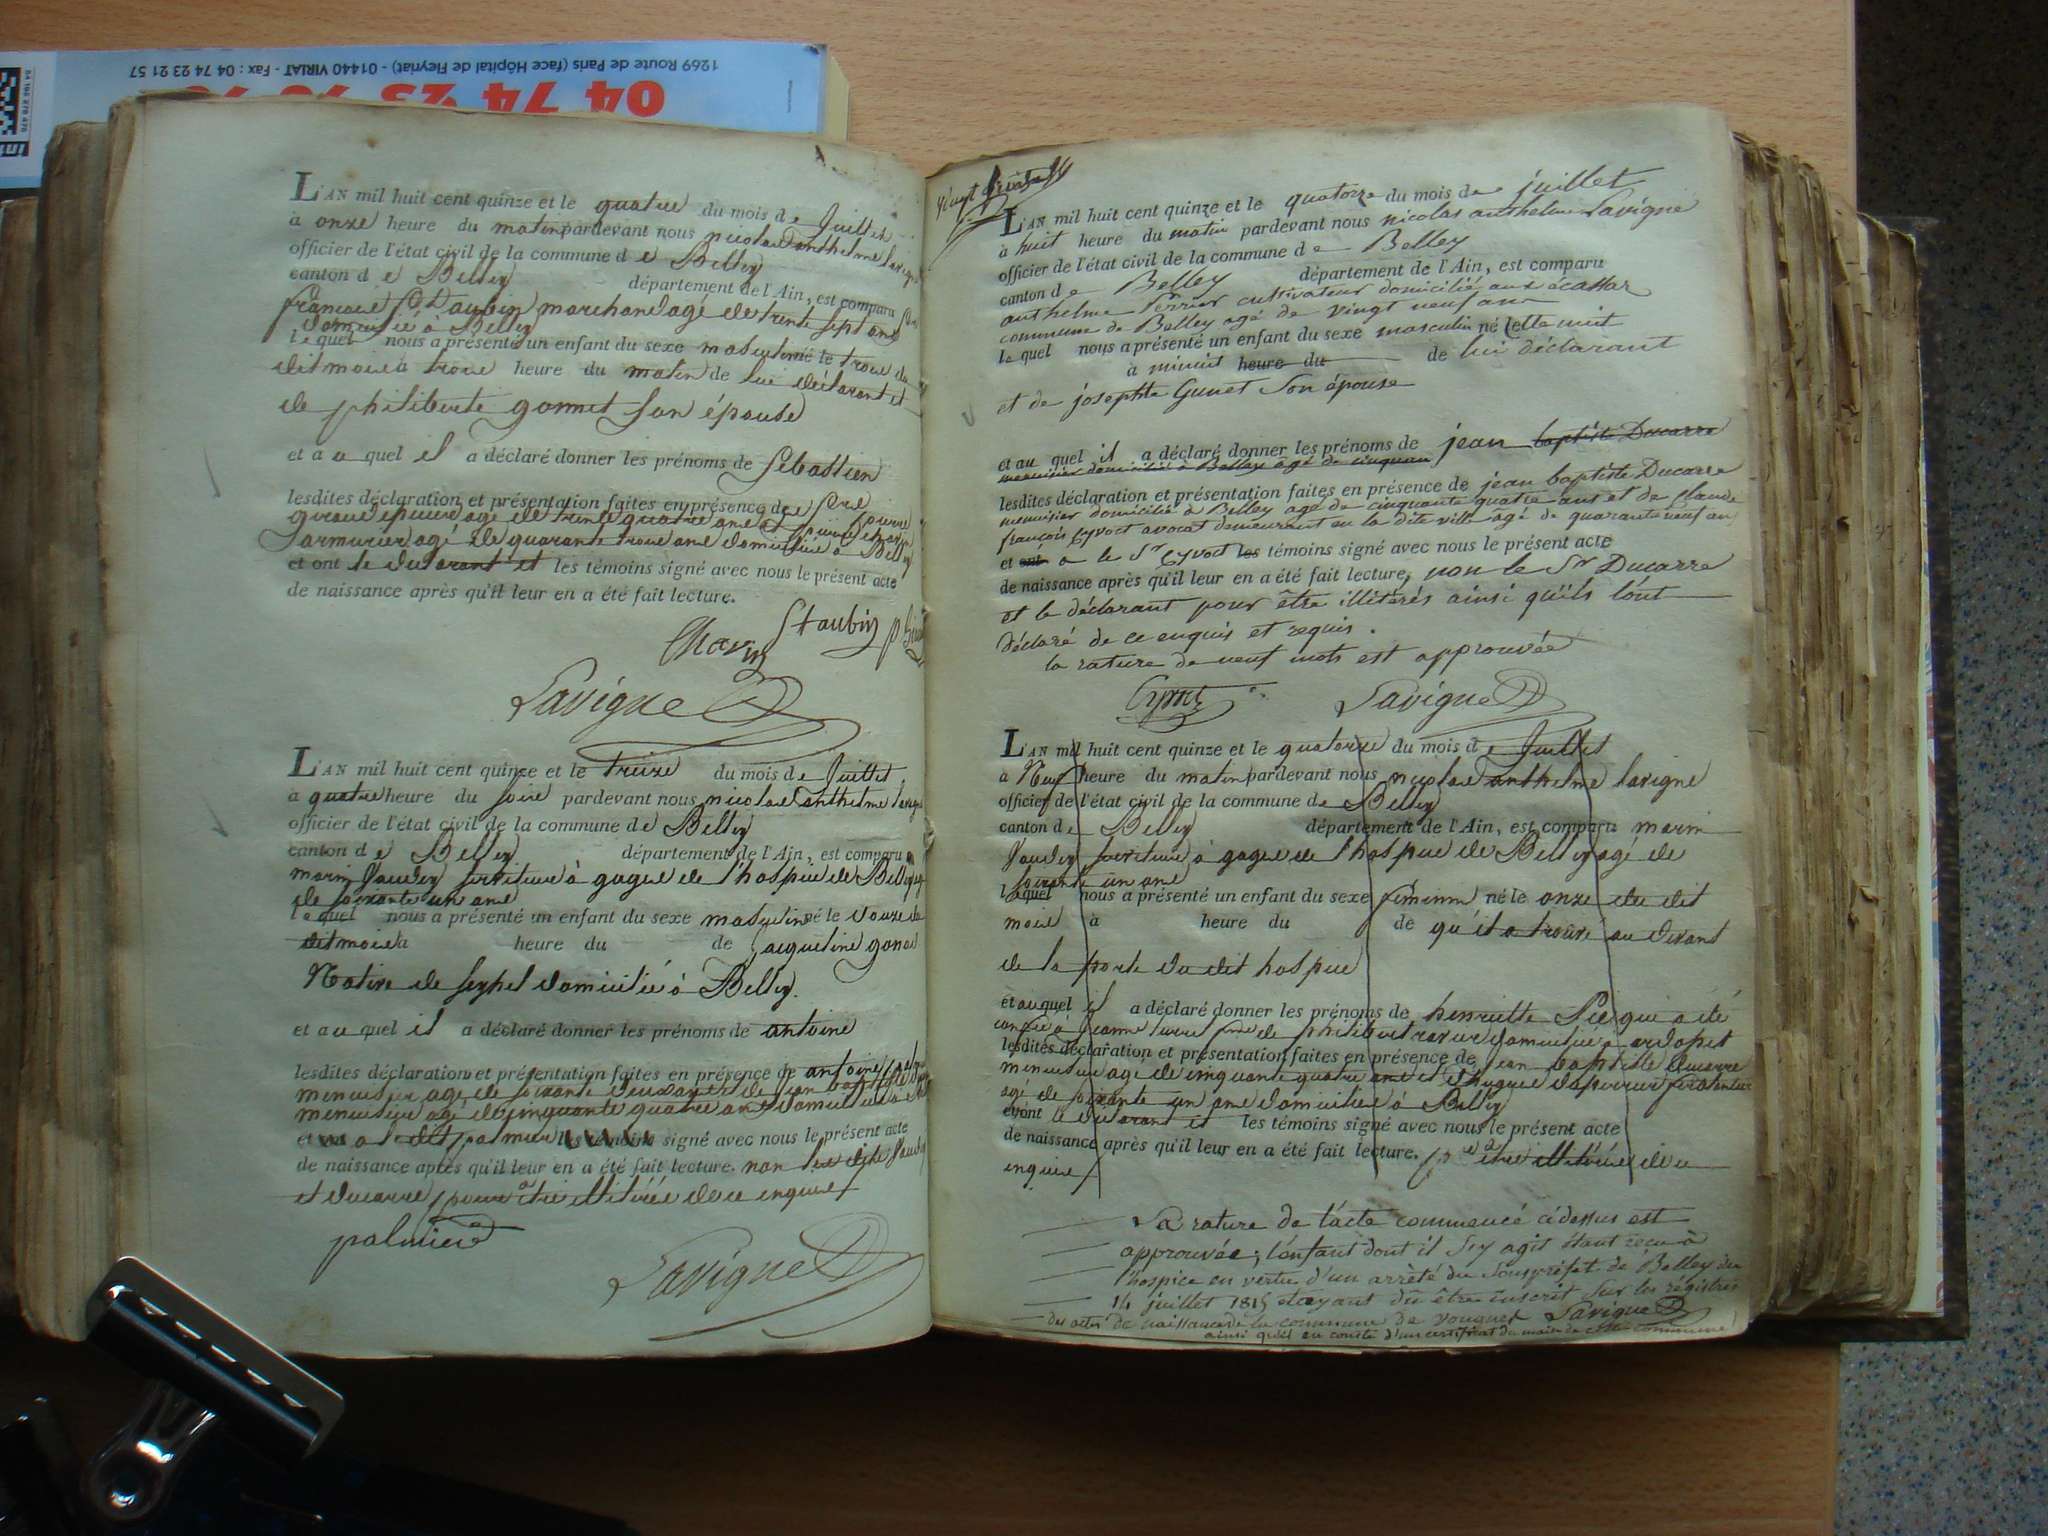 1269 Route de Paris (face Hôpital de Fleyriat) - 01440 VIRIAT - Fax : 04 74 23 21 57
04 74 23
L'AN mil huit cent quinze et le quatre du mois de Juillet
à onze heure du matin pardevant nous nicolas anthelme lavigne
officier de l'état civil de la commune de Belley
canton de Belley département de l'Ain, est comparu
françois St aubin marchand agé de trente sept ans
domicilié à Belley
lequel nous a présenté un enfant du sexe masculin né le trois du
dit mois à trois heure du matin de lui déclarant et
de philiberte gonnet son épouse
et au quel il a déclaré donner les prénoms de sébastien
lesdites déclaration et présentation faites en présence de
agé de trente quatre ans et
armurier agé de quarante trois ans domiciliés à Belley
et ont le déclarant et les témoins signé avec nous le présent acte
de naissance après qu'il leur en a été fait lecture.
Staubin
Lavigne
L'AN mil huit cent quinze et le treize du mois de Juillet
à quatre heure du soir pardevant nous nicolas anthelme lavigne
officier de l'état civil de la commune de Belley
canton de Belley département de l'Ain, est comparu
marin serviteur à gages de l'hospice de Belley
de soixante un ans
lequel nous a présenté un enfant du sexe masculin né le douze du
dit mois à heure du de jacqueline
Native de seyssel domiciliée à Belley
et au quel il a déclaré donner les prénoms de antoine
lesdites déclaration et présentation faites en présence de antoine
menuisier agé de soixante de jean baptiste
menuisier agé de cinquante quatre ans domiciliés à
et a le dit palmier les témoins signé avec nous le présent acte
de naissance après qu'il leur en a été fait lecture. non les dits
et ducarre pour être illitérés de ce enquis
palmier
Lavigne
L'AN mil huit cent quinze et le quatorze du mois de juillet
à huit heure du matin pardevant nous nicolas anthelme Lavigne
officier de l'état civil de la commune de Belley
canton de Belley département de l'Ain, est comparu
anthelme Perrier cultivateur domicilié aux écassaz
commune de Belley agé de vingt neuf ans
lequel nous a présenté un enfant du sexe masculin né cette nuit
à minuit heure du de lui déclarant
et de josephte Gunet son épouse
et au quel il a déclaré donner les prénoms de jean baptiste Ducarre
menuisier domicilié à Belley agé de cinquan
lesdites déclaration et présentation faites en présence de jean baptiste Ducarre
menuisier domicilié à Belley agé de cinquante quatre ans et de claude
françois Cyvoct avocat demeurant en la dite ville agé de quarante neuf ans
et ont a le Sr Cyvoct les témoins signé avec nous le présent acte
de naissance après qu'il leur en a été fait lecture, non le Sr Ducarre
et le déclarant pour être illitérés ainsi qu'ils l'ont
déclaré de ce enquis et requis.
la rature de neuf mots est approuvée
Cyvoct Lavigne
L'AN mil huit cent quinze et le quatorze du mois de Juillet
à Neuf heure du matin pardevant nous nicolas anthelme lavigne
officier de l'état civil de la commune de Belley
canton de Belley département de l'Ain, est comparu marin
serviteur à gages de l'hospice de Belley agé de
soixante un ans
lequel nous a présenté un enfant du sexe féminin né le onze du dit
mois à heure du de qu'il a trouvé au devant
de la porte du dit hospice
et auquel il a déclaré donner les prénoms de henriette Pie qui a été
confiée à jeanne de philibert domicilié à
lesdites déclaration et présentation faites en présence de jean baptiste ducarre
menuisier agé de cinquante quatre ans et
agé de soixante un ans domiciliés à Belley
et ont le déclarant et les témoins signé avec nous le présent acte
de naissance après qu'il leur en a été fait lecture. pr être illitérés de ce
enquis
La rature de l'acte commencé cidessus est
approuvée; l'enfant dont il s'y agit étant reçu à
l'hospice en vertu d'un arrêté du Sousprefet de Belley du
14 juillet 1815 et ayant dû être inscrit sur les régistres
des actes de naissance de la commune de vongnes Lavigne
ainsi qu'il en conste d'un certificat du maire de cette commune